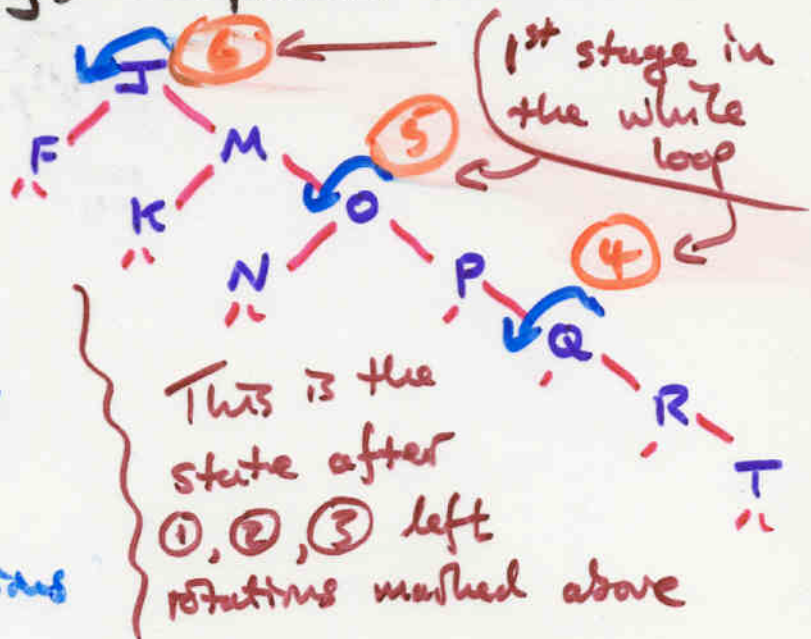 6
1st stage in
the while
loop
5
4
J
F
M
K
O
N
P
Q
R
T
This is the
state after
①, ②, ③ left
rotations marked above